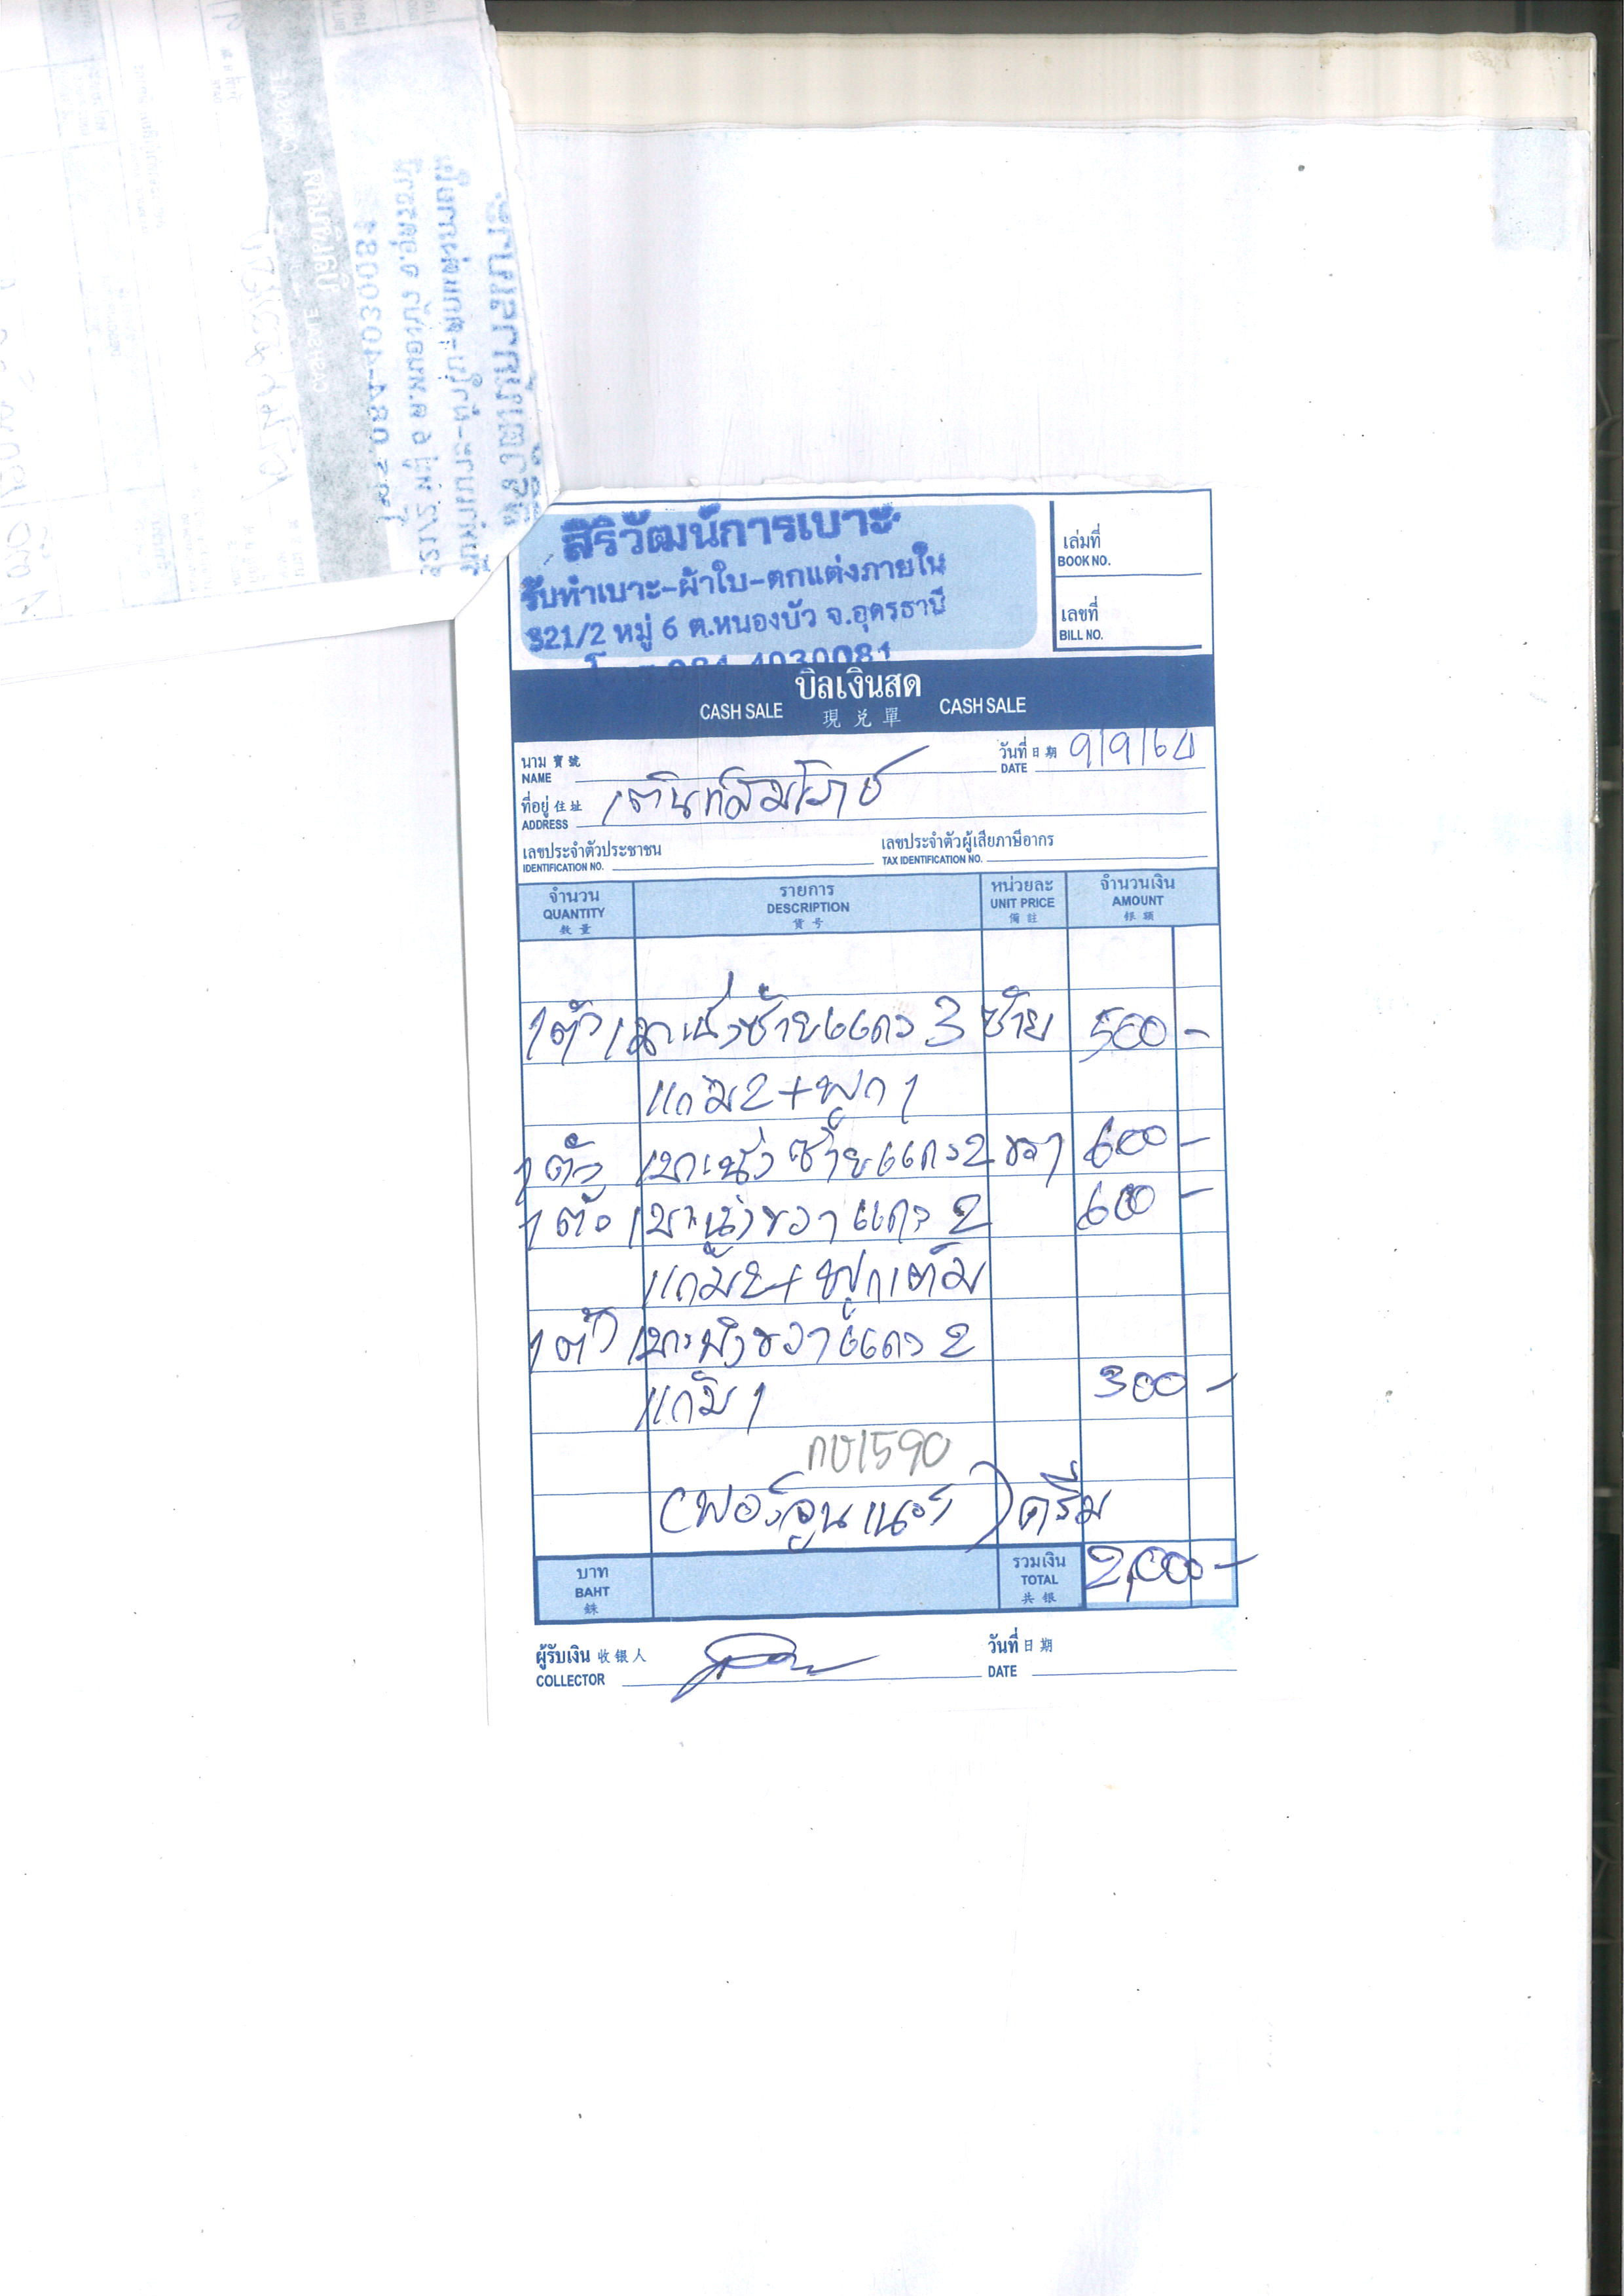 สิริวัฒน์การเบาะ
รับทำเบาะ-ผ้าใบ-ตกแต่งภายใน
321/2 หมู่ 6 ต.หนองบัว จ.อุดรธานี
โทร.081-4030081
เล่มที่
BOOK NO.
เลขที่
BILL NO.
บิลเงินสด
CASH SALE 現兌單 CASH SALE
นาม 寶號
NAME
วันที่ 日期 9/9/64
DATE
ที่อยู่ 住址 เต็นท์สมโภช
ADDRESS
เลขประจำตัวประชาชน
IDENTIFICATION NO.
เลขประจำตัวผู้เสียภาษีอากร
TAX IDENTIFICATION NO.
จำนวน รายการ หน่วยละ จำนวนเงิน
QUANTITY DESCRIPTION UNIT PRICE AMOUNT
數量 貨号 備註 銀額
1 ตัว เบาะนั่งซ้ายแถว 3 ซ้าย 500 -
แก้ม 2 + ฟูก 1
1 ตัว เบาะนั่งซ้ายแถว 2 ขวา 600 -
1 ตัว เบาะนั่งขวาแถว 2 600 -
แก้ม 2 + ฟูกเต็ม
1 ตัว เบาะพิงขวาแถว 2
แก้ม 1 300 -
กข1590
(ฟอร์จูนเนอร์) ครีม
บาท รวมเงิน 2,000 -
BAHT TOTAL
銖 共銀
ผู้รับเงิน 收银人
COLLECTOR
วันที่ 日期
DATE